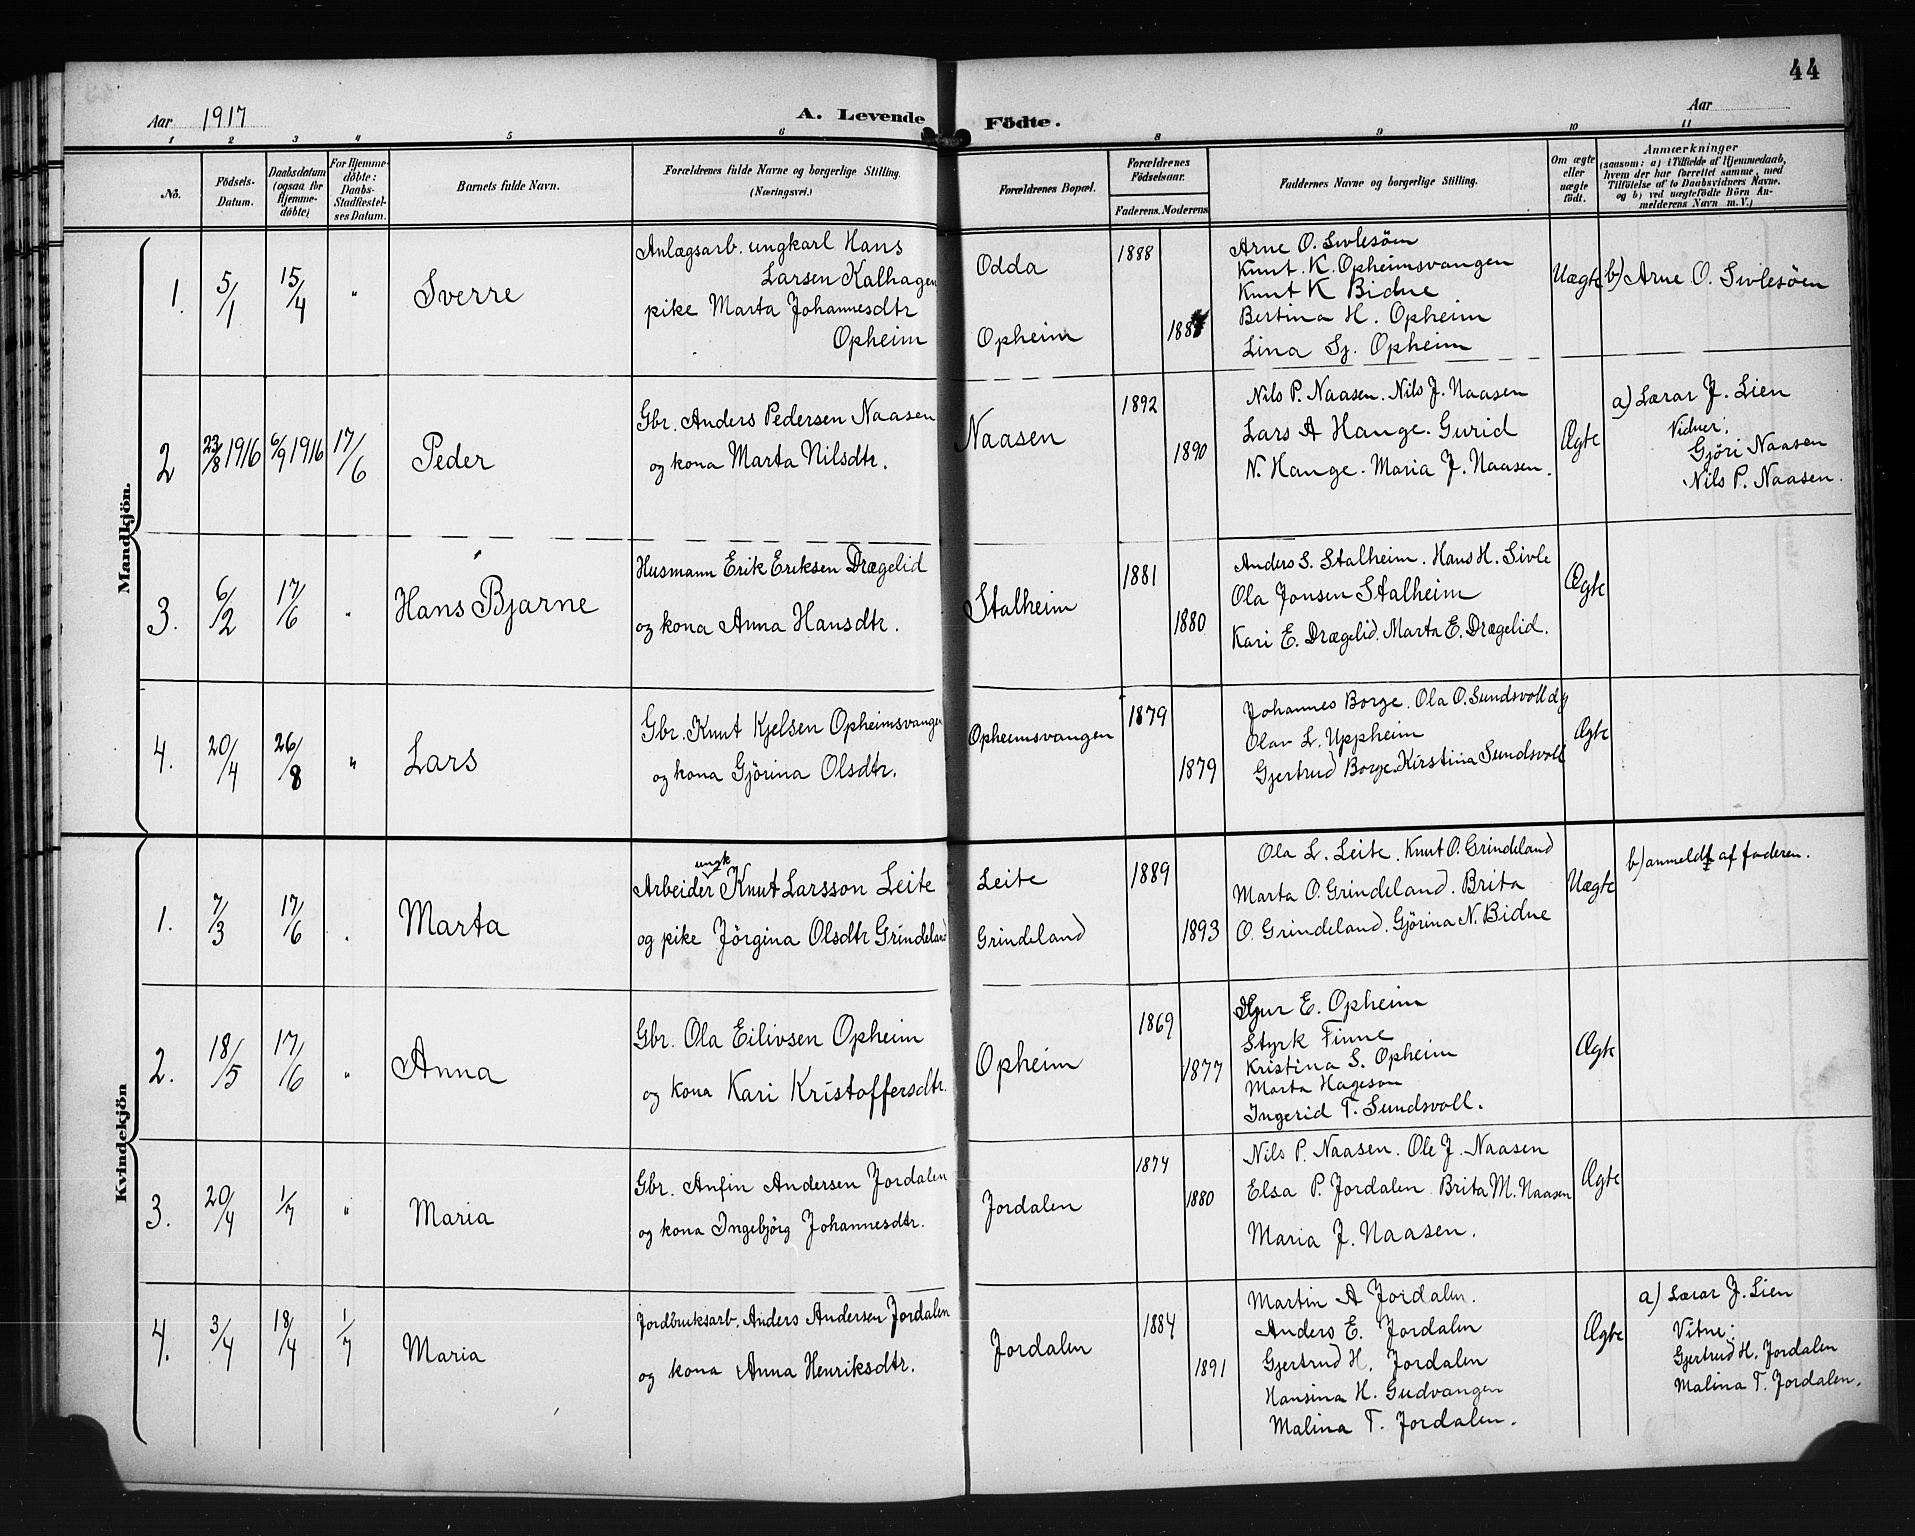 44
Aar 1917
A. Levende Födte.
Aar
1 2 3 4 5 6 8 9 10 11
No.
Födsels-Datum.
Daabsdatum (ogsaa for Hjemme-döbte)
For Hjemme-döbte: Daabs-Stadfæstel-ses Datum.
Barnets fulde Navn.
Forældrenes fulde Navne og borgerlige Stilling. (Næringsvei.)
Forældrenes Bopæl.
Forældrenes Födselsaar.
Faderens. Moderens.
Faddernes Navne og borgerlige Stilling.
Om ægte eller uægte födt.
Anmærkninger
(saasom: a) i Tilfælde af Hjemmedaab, hvem der har forrettet samme, med Tilföielse af to Daabsvidners Navne, og b) ved uægtefödte Börn Anmelderens Navn m. V.)
Mandkjön.
1. 5/1 15/4 " Sverre
Anlægsarb. ungkarl Hans
Larsen Kalhagen
pike Marta Johannesdtr
Opheim
Odda
Opheim
1888
Arne O. Sivlesöen
Knut K. Opheimsvangen
Knut K Bidne
Bertina H. Opheim
Lina Sj. Opheim
Uægte
b) Arne O. Sivlesöen
2 23/8 1916 6/9 1916 17/6 Peder
Gbr. Anders Pedersen Naasen
og kona Marta Nilsdtr.
Naasen
1892
1890
Nils P. Naasen. Nils J. Naasen
Lars A Hauge. Gurid
N. Hauge. Maria J. Naasen.
Ægte
a) Lærar J. Lien
Vidner:
Gjöri Naasen
Nils P. Naasen.
3. 6/2 17/6 " Hans Bjarne
Husmann Erik Eriksen Drægelid
og kona Anna Hansdtr.
Stalheim
1881
1880
Anders S. Stalheim. Hans H. Sivle
Ola Jonsen Stalheim
Kari E. Drægelid. Marta E. Drægelid.
Ægte
4. 20/4 26/8 " Lars
Gbr. Knut Kjelsen Opheimsvangen
og kona Gjörina Olsdtr.
Opheimsvangen
1879
1879
Johannes Borge. Ola O. Sundsvoll dy
Olav L. Uppheim
Gjertrud Borge. Kirstina Sundsvoll
Ægte
Kvindekjön
1. 7/3 17/6 " Marta
ungk
Arbeider Knut Larsson Leite
og pike Jörgina Olsdtr Grindeland
Leite
Grindeland
1889
1893
Ola L. Leite. Knut O. Grindeland
Marta O. Grindeland. Brita
O. Grindeland. Gjörina N. Bidne
Uægte
b) anmeldt af faderen.
2. 18/5 17/6 " Anna
Gbr. Ola Eilivsen Opheim
og kona Kari Kristoffersdtr.
Opheim
1869
1877
E. Opheim
Styrk Finne
Kristina S. Opheim
Marta Hageson
Ingerid T. Sundsvoll.
Ægte
3. 20/4 1/7 " Maria
Gbr. Anfin Andersen Jordalen
og kona Ingebjörg Johannesdtr.
Jordalen
1874
1880
Nils P. Naasen. Ole J. Naasen
Elsa P. Jordalen. Brita M. Naasen
Maria J. Naasen.
Ægte
4. 3/4 18/4 1/7 Maria
Jordbruksarb. Anders Andersen Jordalen
og kona Anna Henriksdtr.
Jordalen
1884
1891
Martin A Jordalen.
Anders E. Jordalen
Gjertrud H. Jordalen
Hansina H. Gudvangen
Malina T. Jordalen.
Ægte
a) Lærar J. Lien
Vitne:
Gjertrud H. Jordalen
Malina T. Jordalen.